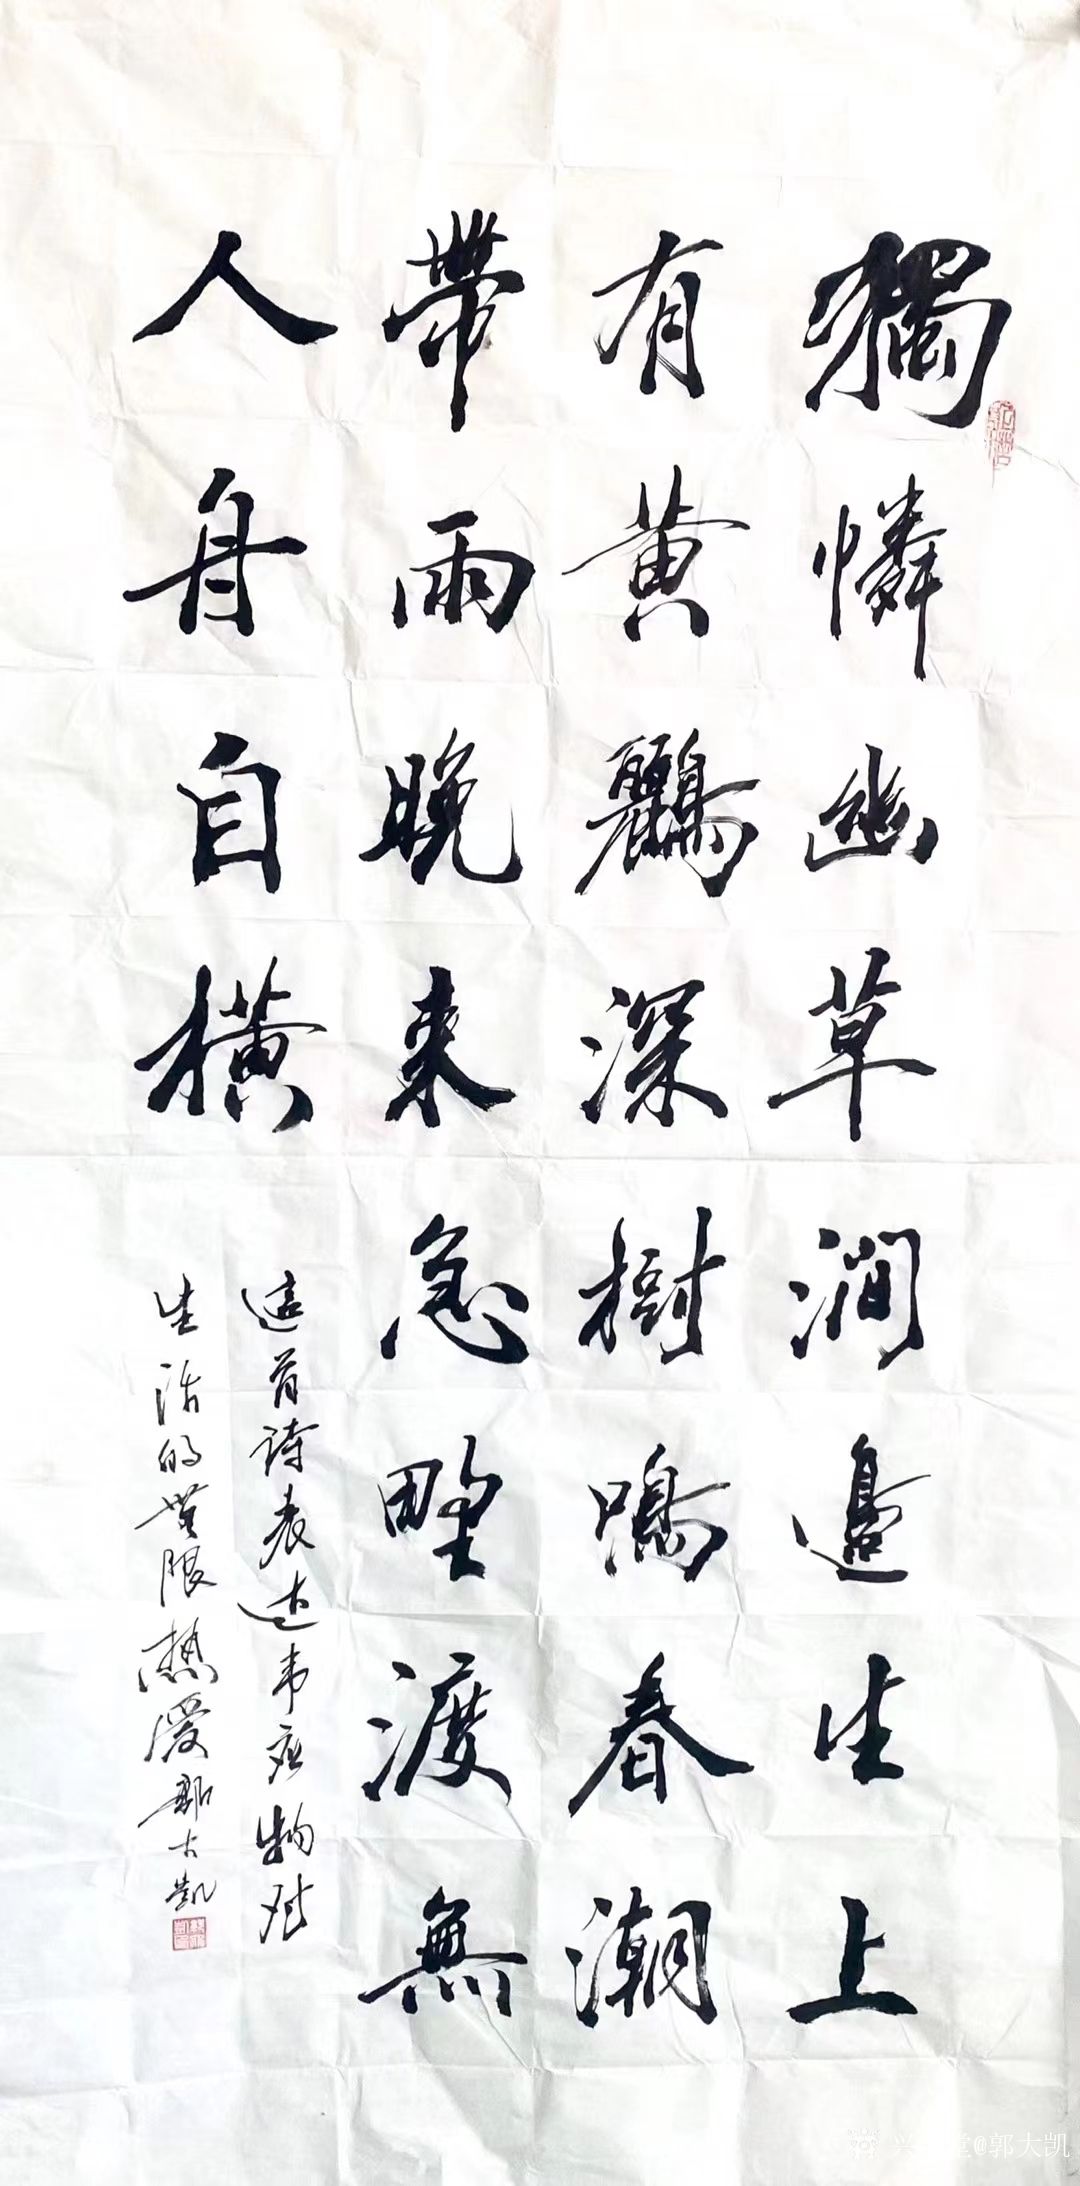 獨憐幽草澗邊生上
有黄鸝深樹鳴春潮
帶雨晚来急野渡無
人舟自横
這首诗表达韦应物对
生活的無限热愛郭大凯
@郭大凯